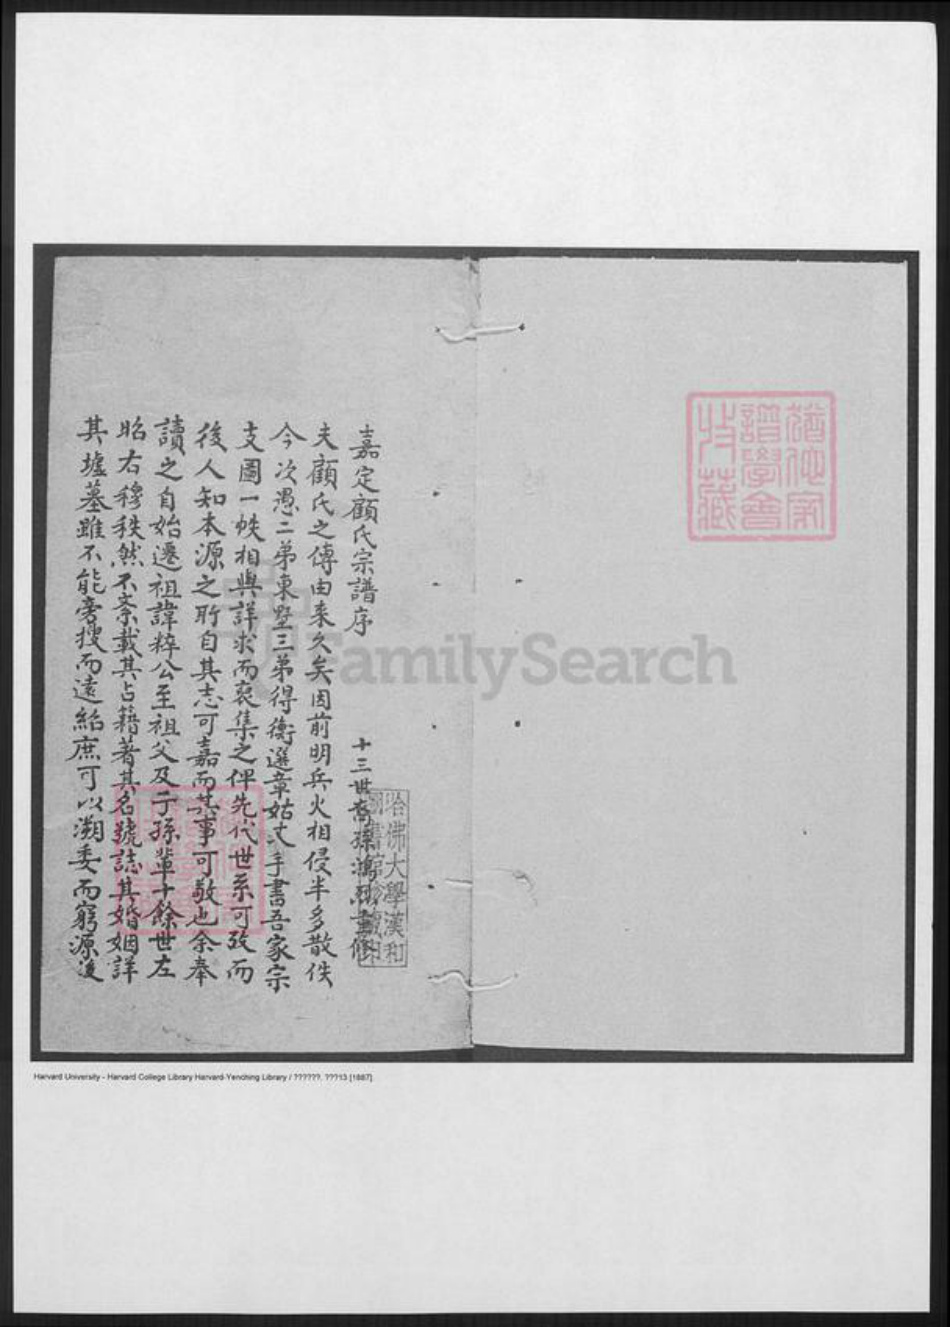 嘉定顧氏宗譜序
十三世裔孫鴻烈重修
夫顧氏之傳由来久矣因前明兵火相侵半多散佚
今次愚二弟東墅三弟得衡選章姑丈手書吾家宗
支圖一帙相與詳求而裒集之俾先代世系可攷而
後人知本源之所自其志可嘉而其事可敬也余奉
讀之自始遷祖諱粹公至祖父及子孫輩十餘世左
昭右穆秩然不紊載其占籍著其名號誌其婚姻詳
其墟墓雖不能旁搜而遠紹庶可以溯委而窮源後
哈佛大學漢和
圖書館珍藏印
猶他家
譜學會
收藏
FamilySearch
Harvard University - Harvard College Library Harvard-Yenching Library / ??????. ???13 [1887]